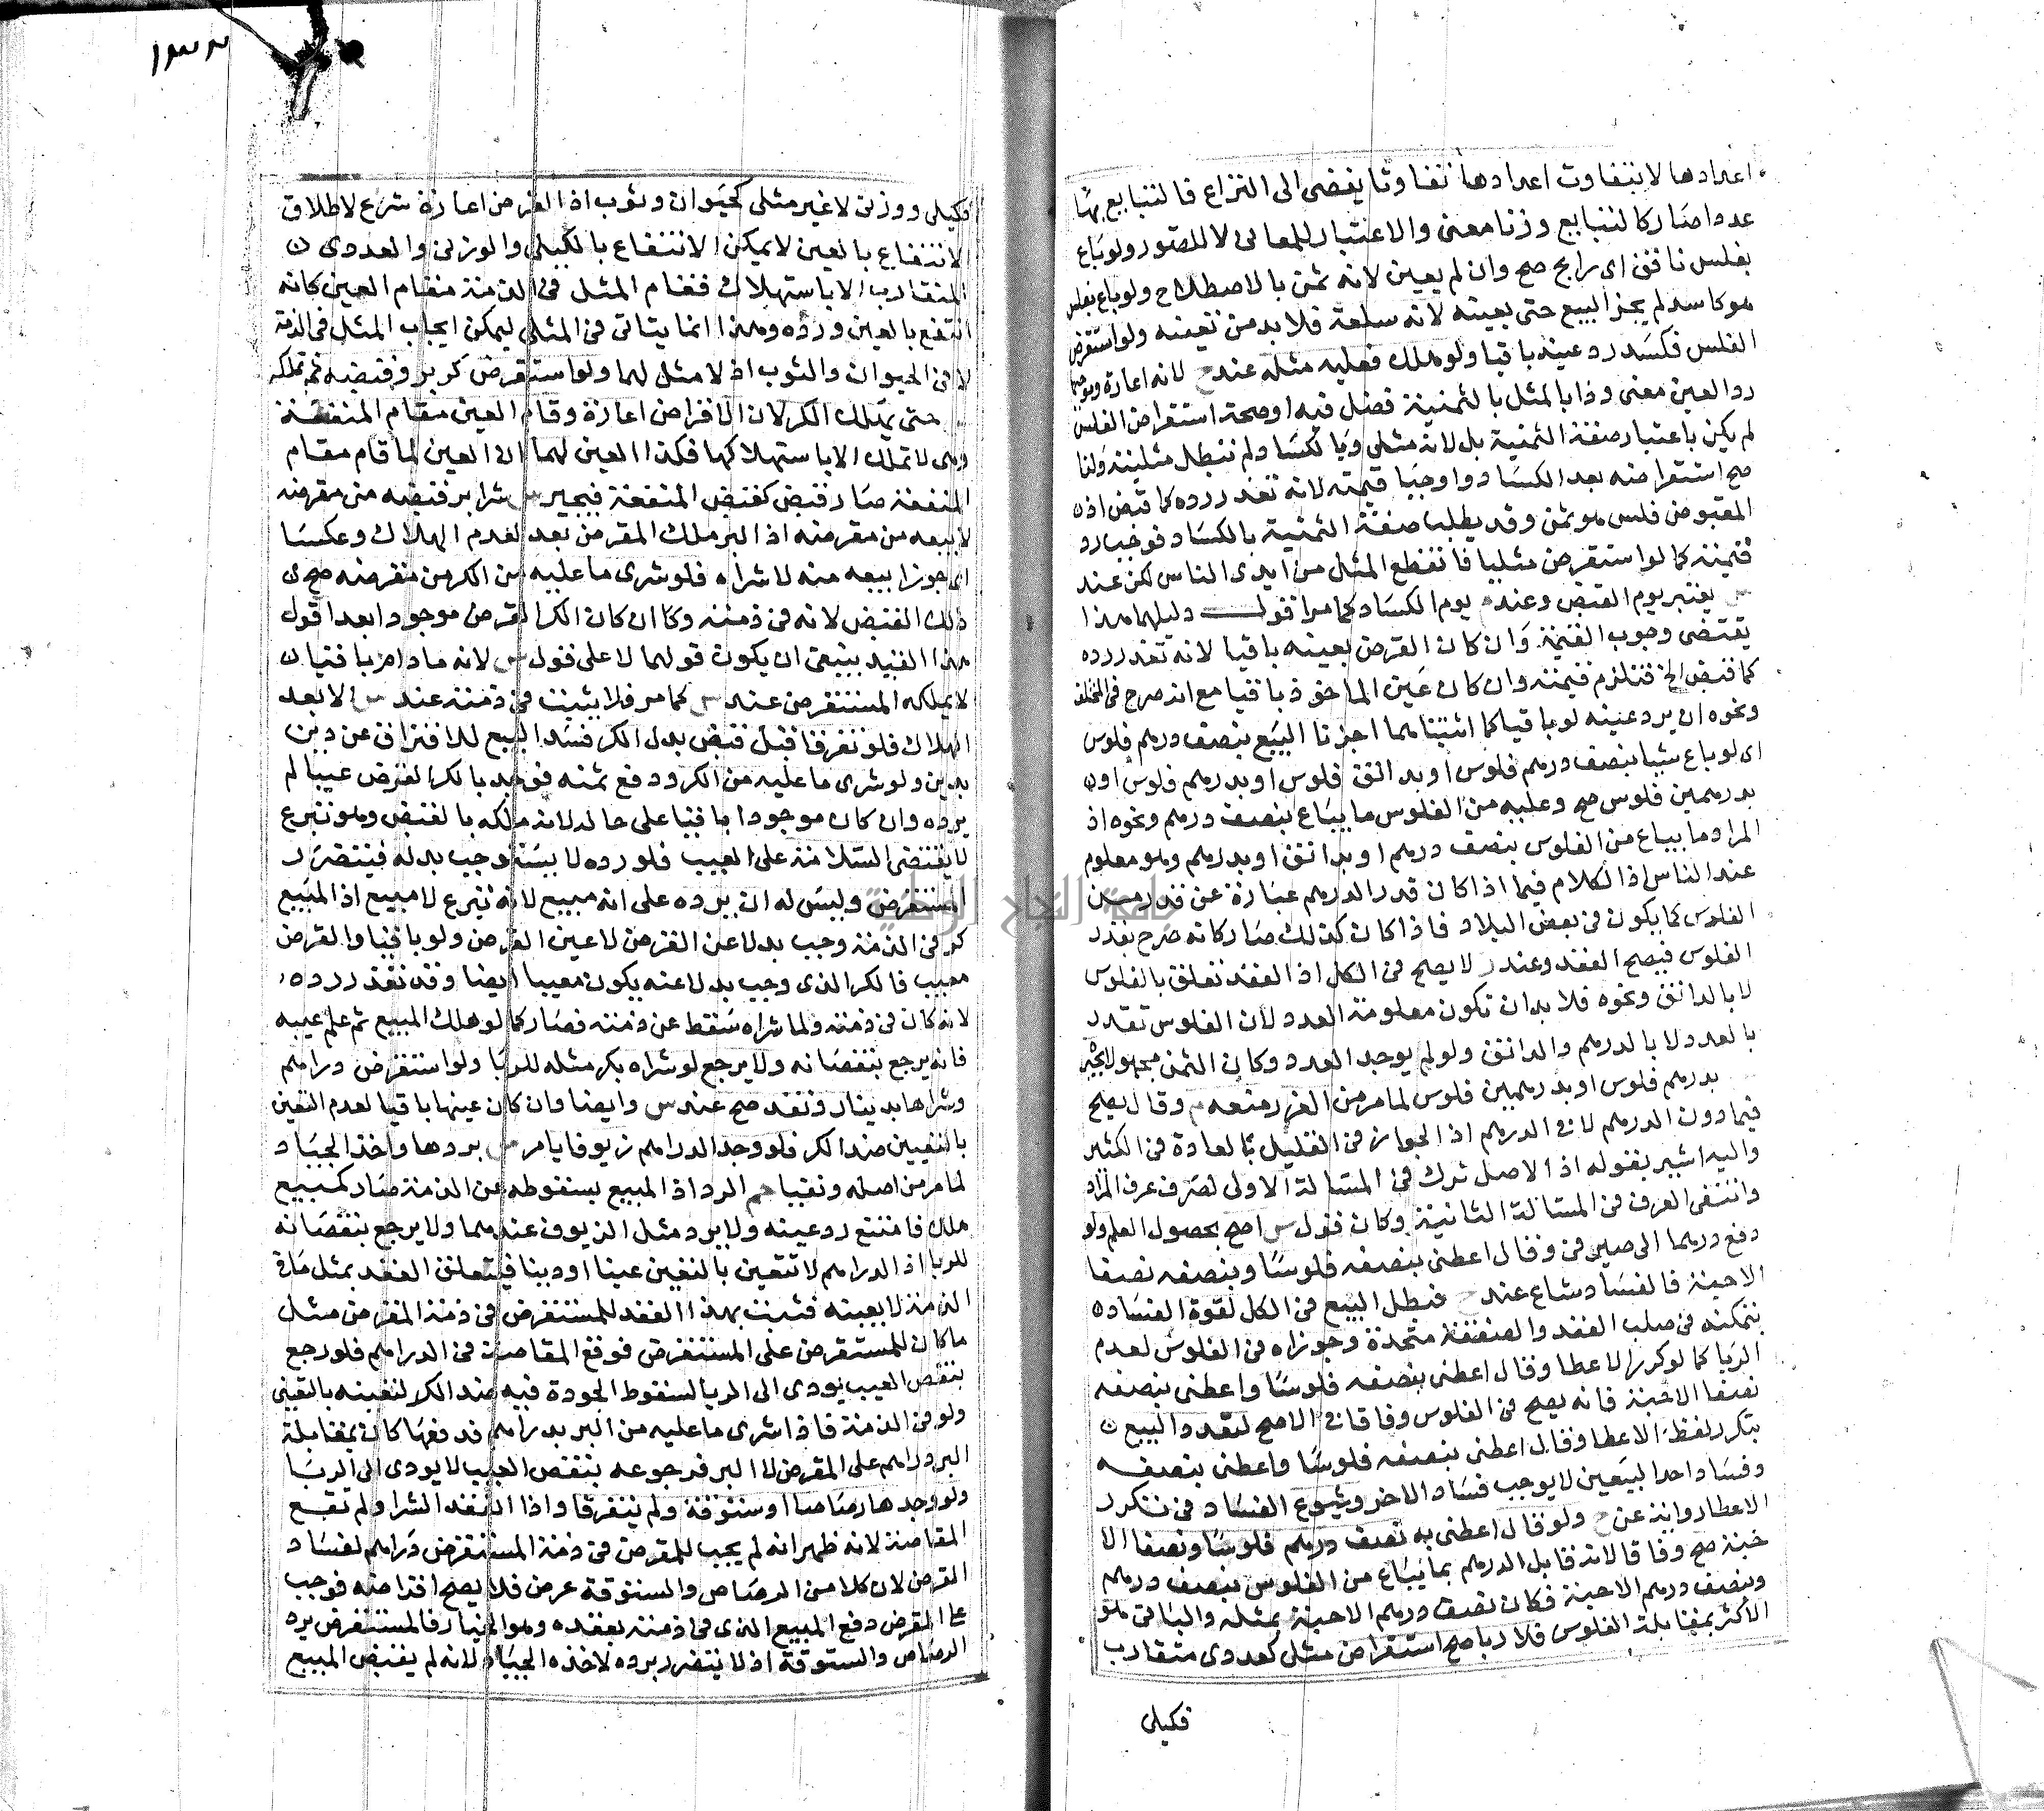 اعدادها لا يتفاوت اعدادها تفاوتا يفضى الى النزاع فالتبايع بها
عددا صار كالتبايع وزنا معنى والاعتبار للمعانى لا للصور ولو باع
بفلس نافق اى رايج صح وان لم يعين لانه ثمن بالاصطلاح ولو باع بفلس
هو كاسد لم يجز البيع حتى يعينه لانه سلعة فلا بد من تعينه ولو استقرض
الفلس فكسد رد عينه باقيا ولو هلك فعليه مثله عند ح لانه اعارة وموجبها
رد العين معنى وذا بالمثل بالثمنية فضل فيه او صحة استقراض الفلس
لم يكن باعتبار صفة الثمنية بل لانه مثلى وبالكساد لم تبطل مثليته ولذا
صح استقراضه بعد الكساد واوجبا قيمته لانه تعذر رده كما قبض اذ
المقبوض فلس هو ثمن وقد بطلت صفة الثمنية بالكساد فوجب رد
قيمته كما لو استقرض مثليا فانقطع المثل من ايدى الناس لكن عند
س يعتبر يوم القبض وعند م يوم الكساد كما مر اقول دليلهما هذا
يقتضى وجوب القيمة وان كان القرض بعينه باقيا لانه تعذر رده
كما قبض الخ فتلزم قيمته وان كان عين الماخوذ باقيا مع انه صرح فى المختلف
ونحوه ان يرد عينه لو باقيا كما اثبتنا مما اجزنا البيع بنصف درهم فلوس
اى لو باع شيا بنصف درهم فلوس او بدانق فلوس او بدرهم فلوس او
بدرهمين فلوس صح وعليه من الفلوس ما يباع بنصف درهم ونحوه اذ
المراد ما يباع من الفلوس بنصف درهم او بدانق او بدرهم وهو معلوم
عند الناس اذ الكلام فيما اذا كان قدر الدرهم عبارة عن قدر من
الفلوس كما يكون فى بعض البلاد فاذا كان كذلك صار كانه صرح بقدر
الفلوس فيصح العقد وعند ز لا يصح فى الكل اذ العقد تعلق بالفلوس
لا بالدانق ونحوه فلا بد ان تكون معلومة العدد لان الفلوس تقدر
بالعدد لا بالدرهم والدانق ولو لم يوجد العدد وكان الثمن مجهولا لا يجبر
بدرهم فلوس او بدرهمين فلوس لما مر من الغرر منعه م وقال يصح
فيما دون الدرهم لا فى الدرهم اذ الجواز فى القليل بالعادة فى الكثير
واليه اشير بقوله اذ الاصل ترك فى المسالة الاولى لصرف عرف المراد
وانتفى العرف فى المسالة الثانية وكان قول س اصح بحصول العلم ولو
دفع درهما الى صيرفى وقال اعطنى بنصفه فلوسا وبنصفه نصفا
الا حبة فالفساد شاع عند ح فبطل البيع فى الكل لقوة الفساد
بتمكنه فى صلب العقد والصفقة متحدة وجوزاه فى الفلوس لعدم
الربا كما لو كرر الاعطا وقال اعطنى بنصفه فلوسا واعطنى بنصفه
نصفا الا حبة فانه يصح فى الفلوس وفاقا فى الاصح لتعدد البيع
بتكرر لفظ الاعطا وقال اعطنى بنصفه فلوسا واعطنى بنصفه
وفساد احد البيعين لا يوجب فساد الاخر وشيوع الفساد فى تكرر
الاعطا رواية عن ح ولو قال اعطنى به نصف درهم فلوسا ونصفا الا
حبة صح وفاقا لانه قابل الدرهم بما يباع من الفلوس بنصف درهم
وبنصف درهم الا حبة فكان نصف درهم الا حبة بمثله والباقى هو
الاكثر بمقابلة الفلوس فلا ربا صح استقراض مثلى كعددى متقارب
فكيلى
١٣٣
فكيلى ووزنى لا غير مثلى كحيوان وثوب اذ القرض اعارة شرع لاطلاق
الانتفاع بالعين لا يمكن الانتفاع بالكيلى والوزنى والعددى
المتقارب الا باستهلاك فقام المثل فى الذمة مقام العين كانه
انتفع بالعين ورده وهذا انما يتاتى فى المثلى ليمكن ايجاب المثل فى الذمة
لا فى الحيوان والثوب اذ لا مثل لهما ولو استقرض كر بر وقبضه ثم تملكه
حتى يملك الكر لان الاقراض اعارة وقام العين مقام المنفعة
وهى لا تملك الا باستهلاكها فكذا العين لهما ان العين لما قام مقام
المنفعة صار قبض كقبض المنفعة فيجيز س شرا بر قبضه من مقرضه
لا بيعه من مقرضه اذ البر ملك المقرض بعد لعدم الهلاك وعكسا
اى جوزا بيعه منه لا شراه فلو شرى ما عليه من الكر من مقرضه صح
ذلك القبض لانه فى ذمته وكا ان كان الكر القرض موجودا بعد اقول
هذا القيد ينبغى ان يكون قولهما لا على قول س لانه ما دام باقيا
لا يملكه المستقرض عند س كما مر فلا يثبت فى ذمته عند س الا بعد
الهلاك فلو تفرقا قبل قبض بدل الكر فسد البيع للافتراق عن دين
بدين ولو شرى ما عليه من الكر ودفع ثمنه فوجد بالكر القرض عيبا لم
يرده وان كان موجودا باقيا على حاله لانه ملكه بالقبض وهو تبرع
لا يقتضى السلامة على العيب فلو رده لا يسترد يجب بدله فيتضرر
المستقرض وليس له ان يرده على انه مبيع لانه تبرع لا مبيع اذ المبيع
كر فى الذمة وجب بدلا عن القرض لا عين القرض ولو باقيا والقرض
معيب فالكر الذى وجب بدلا عنه يكون معيبا ايضا وقد تعذر رده
لانه كان فى ذمته ولما شراه سقط عن ذمته فصار كما لو هلك المبيع ثم علم عيبه
فانه يرجع بنقصانه ولا يرجع لو شراه بكر مثله للربا ولو استقرض دراهم
وشراها بدينار ونقد صح عند س وايضا وان كان عينها باقيا لعدم التعين
بالتعيين ضد الكر فلو وجد الدراهم زيوفا يامر س بردها واخذ الجياد
لما مر من اصله ونفيا هم الرد اذ المبيع بسقوطه عن الذمة صار كمبيع
هلك فامتنع رد عينه ولا يرد مثل الزيوف عندهما ولا يرجع بنقصانه
للربا اذ الدراهم لا تتعين بالتعين عينا او دينا فيتعلق العقد بمثل ما فى
الذمة لا بعينه فثبت بهذا العقد للمستقرض فى ذمة المقرض مثل
ما كان للمستقرض على المستقرض فوقع المقاصة فى الدراهم فلو رجع
بنقص العيب يودى الى الربا لسقوط الجودة فيه ضد الكر لتعينه بالتعين
ولو فى الذمة فاذا شرى ما عليه من البر بدراهم قد دفعها كان بمقابلة
البر دراهم على المقرض لا البر فرجوعه بنقص العيب لا يودى الى الربا
ولو وجدها رصاصا او ستوقة ولم يتفرقا واذا انعقد الشرا ولم تقع
المقاصة لانه ظهر انه لم يجب للمقرض فى ذمة المستقرض دراهم لفساد
القرض لان كلا من الرصاص والستوقة عرض فلا يصح اقتراضه فوجب
على المقرض دفع المبيع الذى فى ذمته بعقده وهو الدينار فالمستقرض يرد
الرصاص والستوقة اذ لا يتضرر برده لاخذه الجياد لانه لم يقبض المبيع